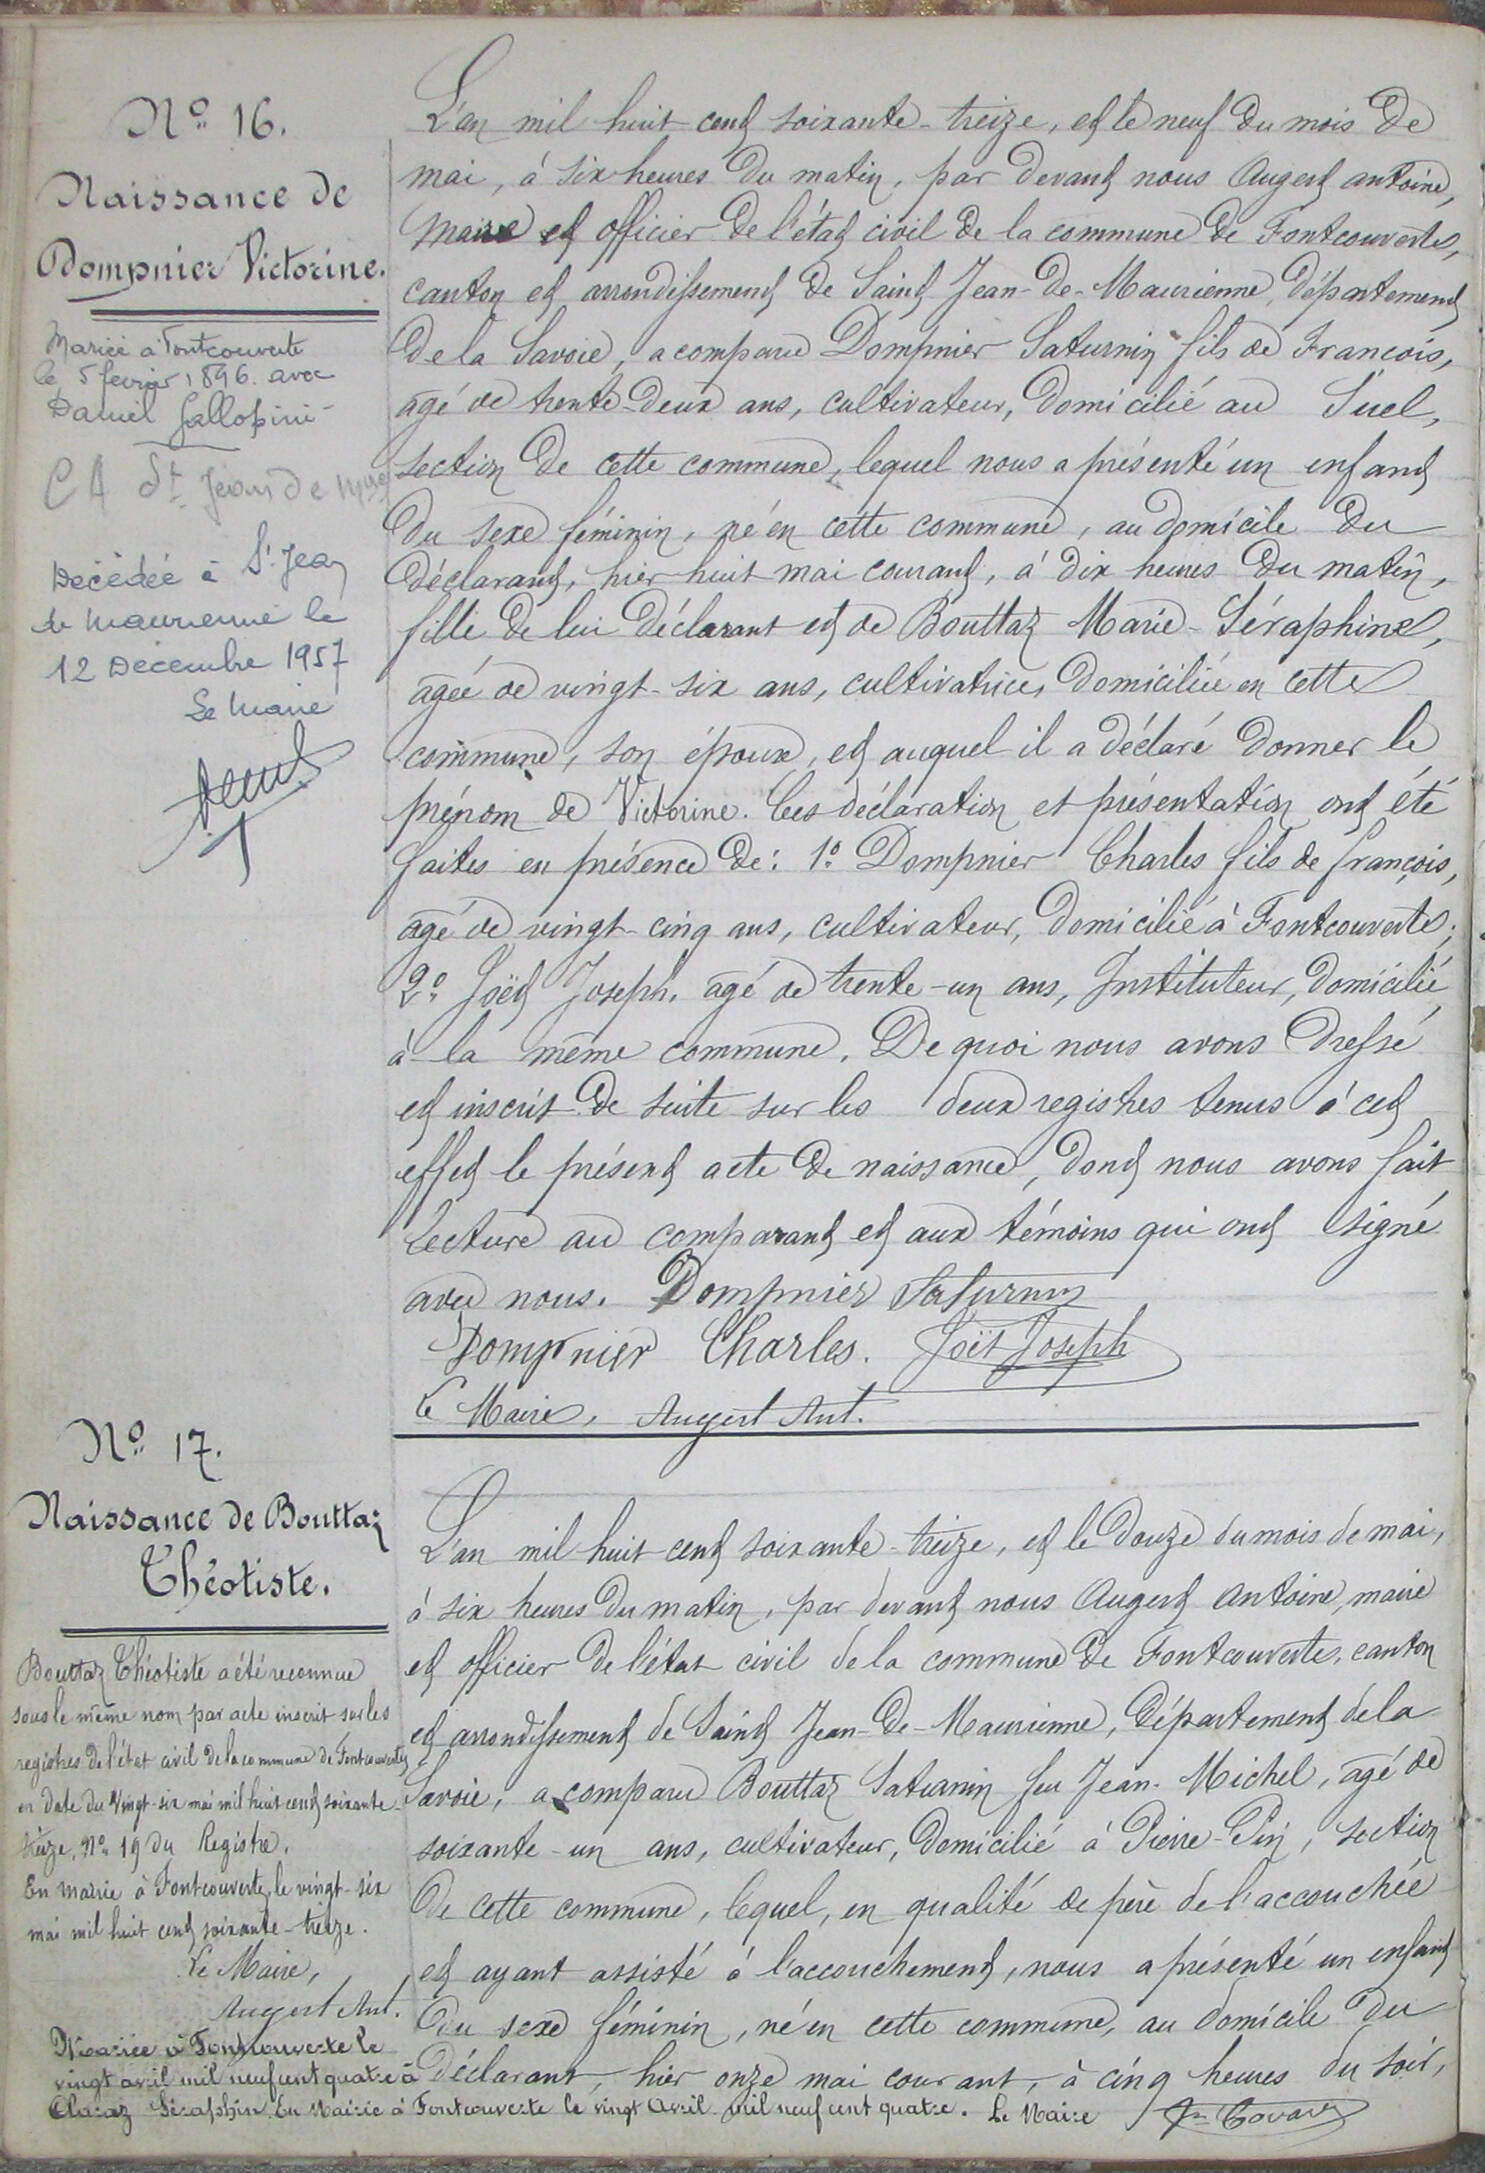 Nº 16.
Naissance de
Dompnier Victorine.
Mariée à Fontcouverte
le 5 fevrier 1896. avec
Daniel Gallopini
CA St Jean de Mne
Décédée à St Jean
de Maurienne le
12 Décembre 1957
Le Maire
L'an mil huit cent soixante-treize, et le neuf du mois de
mai, à six heures du matin, par devant nous Augert antoine,
Maire et officier de l'état civil de la commune de Fontcouverte,
canton et arrondissement de Saint Jean-de-Maurienne, département
de la Savoie, a comparu Dompnier Saturnin fils de François,
agé de trente-deux ans, cultivateur, domicilié au Suel,
section de cette commune, lequel nous a présenté un enfant
du sexe féminin, né en cette commune, au domicile du
déclarant, hier huit mai courant, à dix heures du matin,
fille de lui déclarant et de Bouttaz Marie-Séraphine,
agée de vingt-six ans, cultivatrice, domiciliée en cette
commune, son époux, et auquel il a déclaré donner le
prénom de Victorine. Ces déclaration et présentation ont été
faites en présence de: 1º Dompnier Charles fils de françois,
agé de vingt-cinq ans, cultivateur, domicilié à Fontcouverte;
2º Joët Joseph, agé de trente-un ans, Instituteur, domicilié
à la même commune. De quoi nous avons dressé
et inscrit de suite sur les deux registres tenus à cet
effet le présent acte de naissance, dont nous avons fait
lecture au comparant et aux témoins qui ont signé
avec nous. Dompnier Saturnin
Dompnier Charles. Joët Joseph
Le Maire, Augert Ant.
Nº 17.
Naissance de Bouttaz
Théotiste.
Bouttaz Théotiste a été reconnue
sous le même nom par acte inscrit sur les
registres de l'état civil de la commune de Fontcouverte
en date du Vingt-six mai mil huit cent soixante-
treize, Nº 19 du Registre.
En mairie à Fontcouverte, le vingt-six
mai mil huit cent soixante-treize.
Le Maire,
Augert Ant.
Mariée à Fontcouverte le
vingt avril mil neuf cent quatre à
Claraz Séraphin. En Mairie à Fontcouverte le vingt Avril mil neuf cent quatre. Le Maire
L'an mil huit cent soixante-treize, et le douze du mois de mai,
à six heures du matin, par devant nous Augert Antoine, maire
et officier de l'état civil de la commune de Fontcouverte, canton
et arrondissement de Saint Jean-de-Maurienne, département de la
Savoie, a comparu Bouttaz Saturnin feu Jean-Michel, agé de
soixante-un ans, cultivateur, domicilié à Pierre-Pin, section
de cette commune, lequel, en qualité de père de l'accouchée
et ayant assisté à l'accouchement, nous a présenté un enfant
du sexe féminin, né en cette commune, au domicile du
déclarant, hier onze mai courant, à cinq heures du soir,